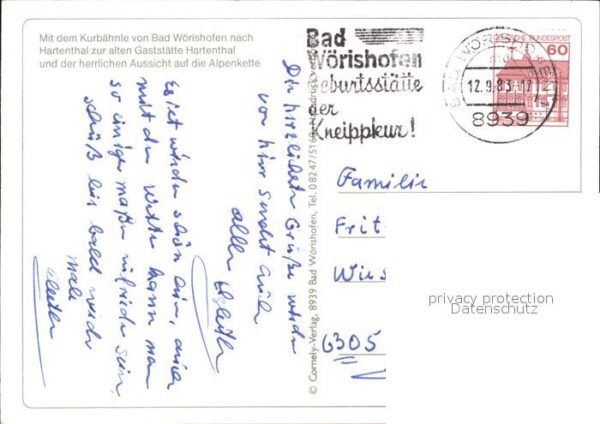 Mit dem Kurbähnle von Bad Wörishofen nach
Hartenthal zur alten Gaststätte Hartenthal
und der herrlichen Aussicht auf die Alpenkette
Bad
Wörishofen
Geburtsstätte
der
Kneippkur!
BAD WÖRISHOFEN
12.9.83-17
8939
DEUTSCHE BUNDESPOST
60
Die herzlichsten Grüße
von hier sendet Euch
allen
Es ist wieder schön hier, auch
mit dem Wetter kann man
so einigermaßen zufrieden sein,
bis bald
mal
© Cornely-Verlag, 8939 Bad Wörishofen, Tel. 08247/5160
Familie
Frit
Wies
6305
privacy protection
Datenschutz